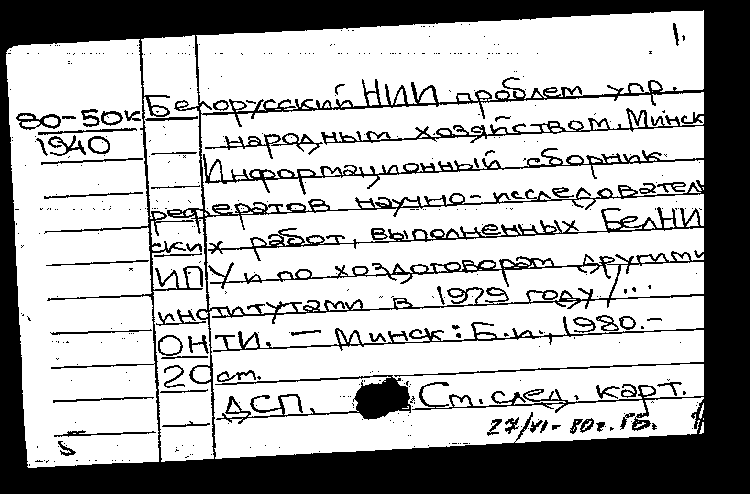 1.
80-50к Белорусский НИИ проблем упр.
1940 народным хозяйством. Минск
Информационный сборник
рефератов научно-исследователь
ских работ, выполненных БелНИ
ИПУ и по хоздоговорам другими
институтами в 1979 году /...
ОНТИ. — Минск: Б.и., 1980.-
20 ст.
ДСП. См. след. карт.
27/VI-80г. ГБ.
5